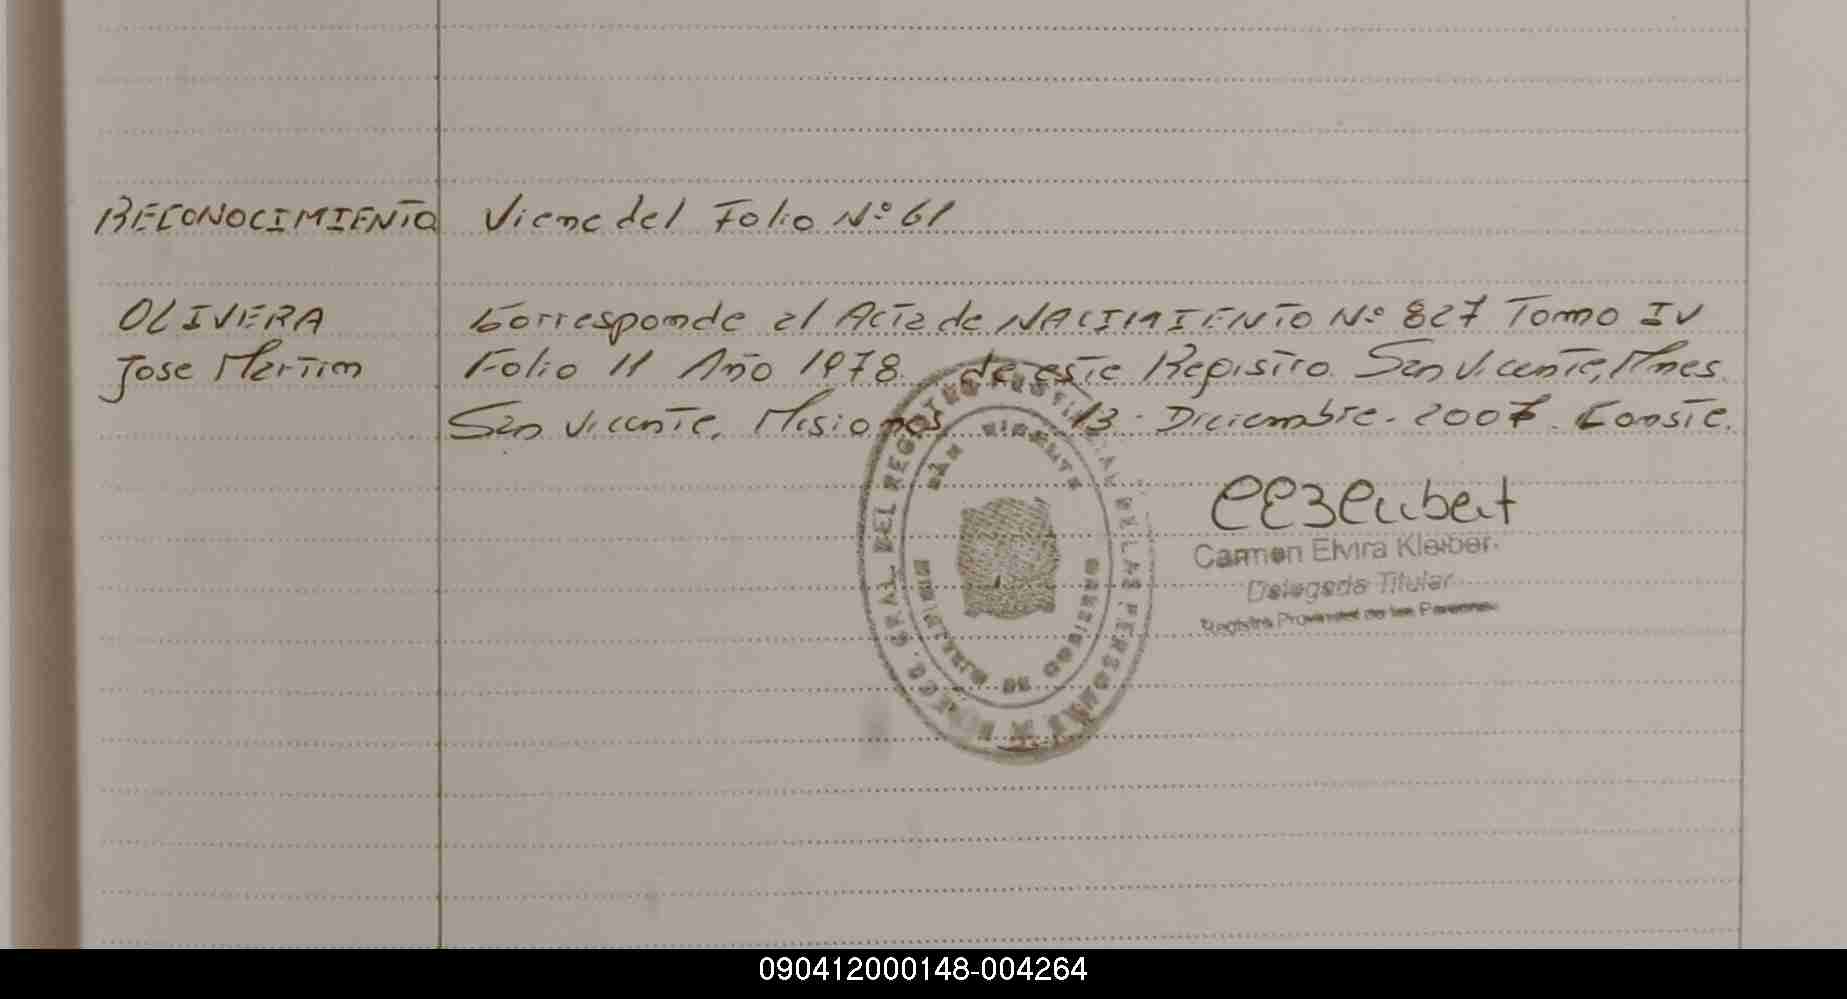 RECONOCIMIENTO Viene del Folio Nº 61
OLIVERA Corresponde al Acta de NACIMIENTO Nº 827 Tomo IV
Jose Martin Folio 11 Año 1978. de este Registro. San Vicente, Mnes.
San Vicente, Misiones 13 - Diciembre - 2007. Conste.
Carmen Elvira Kleiber
Delegada Titular
Registro Provincial de las Personas
SAN VICENTE
090412000148-004264